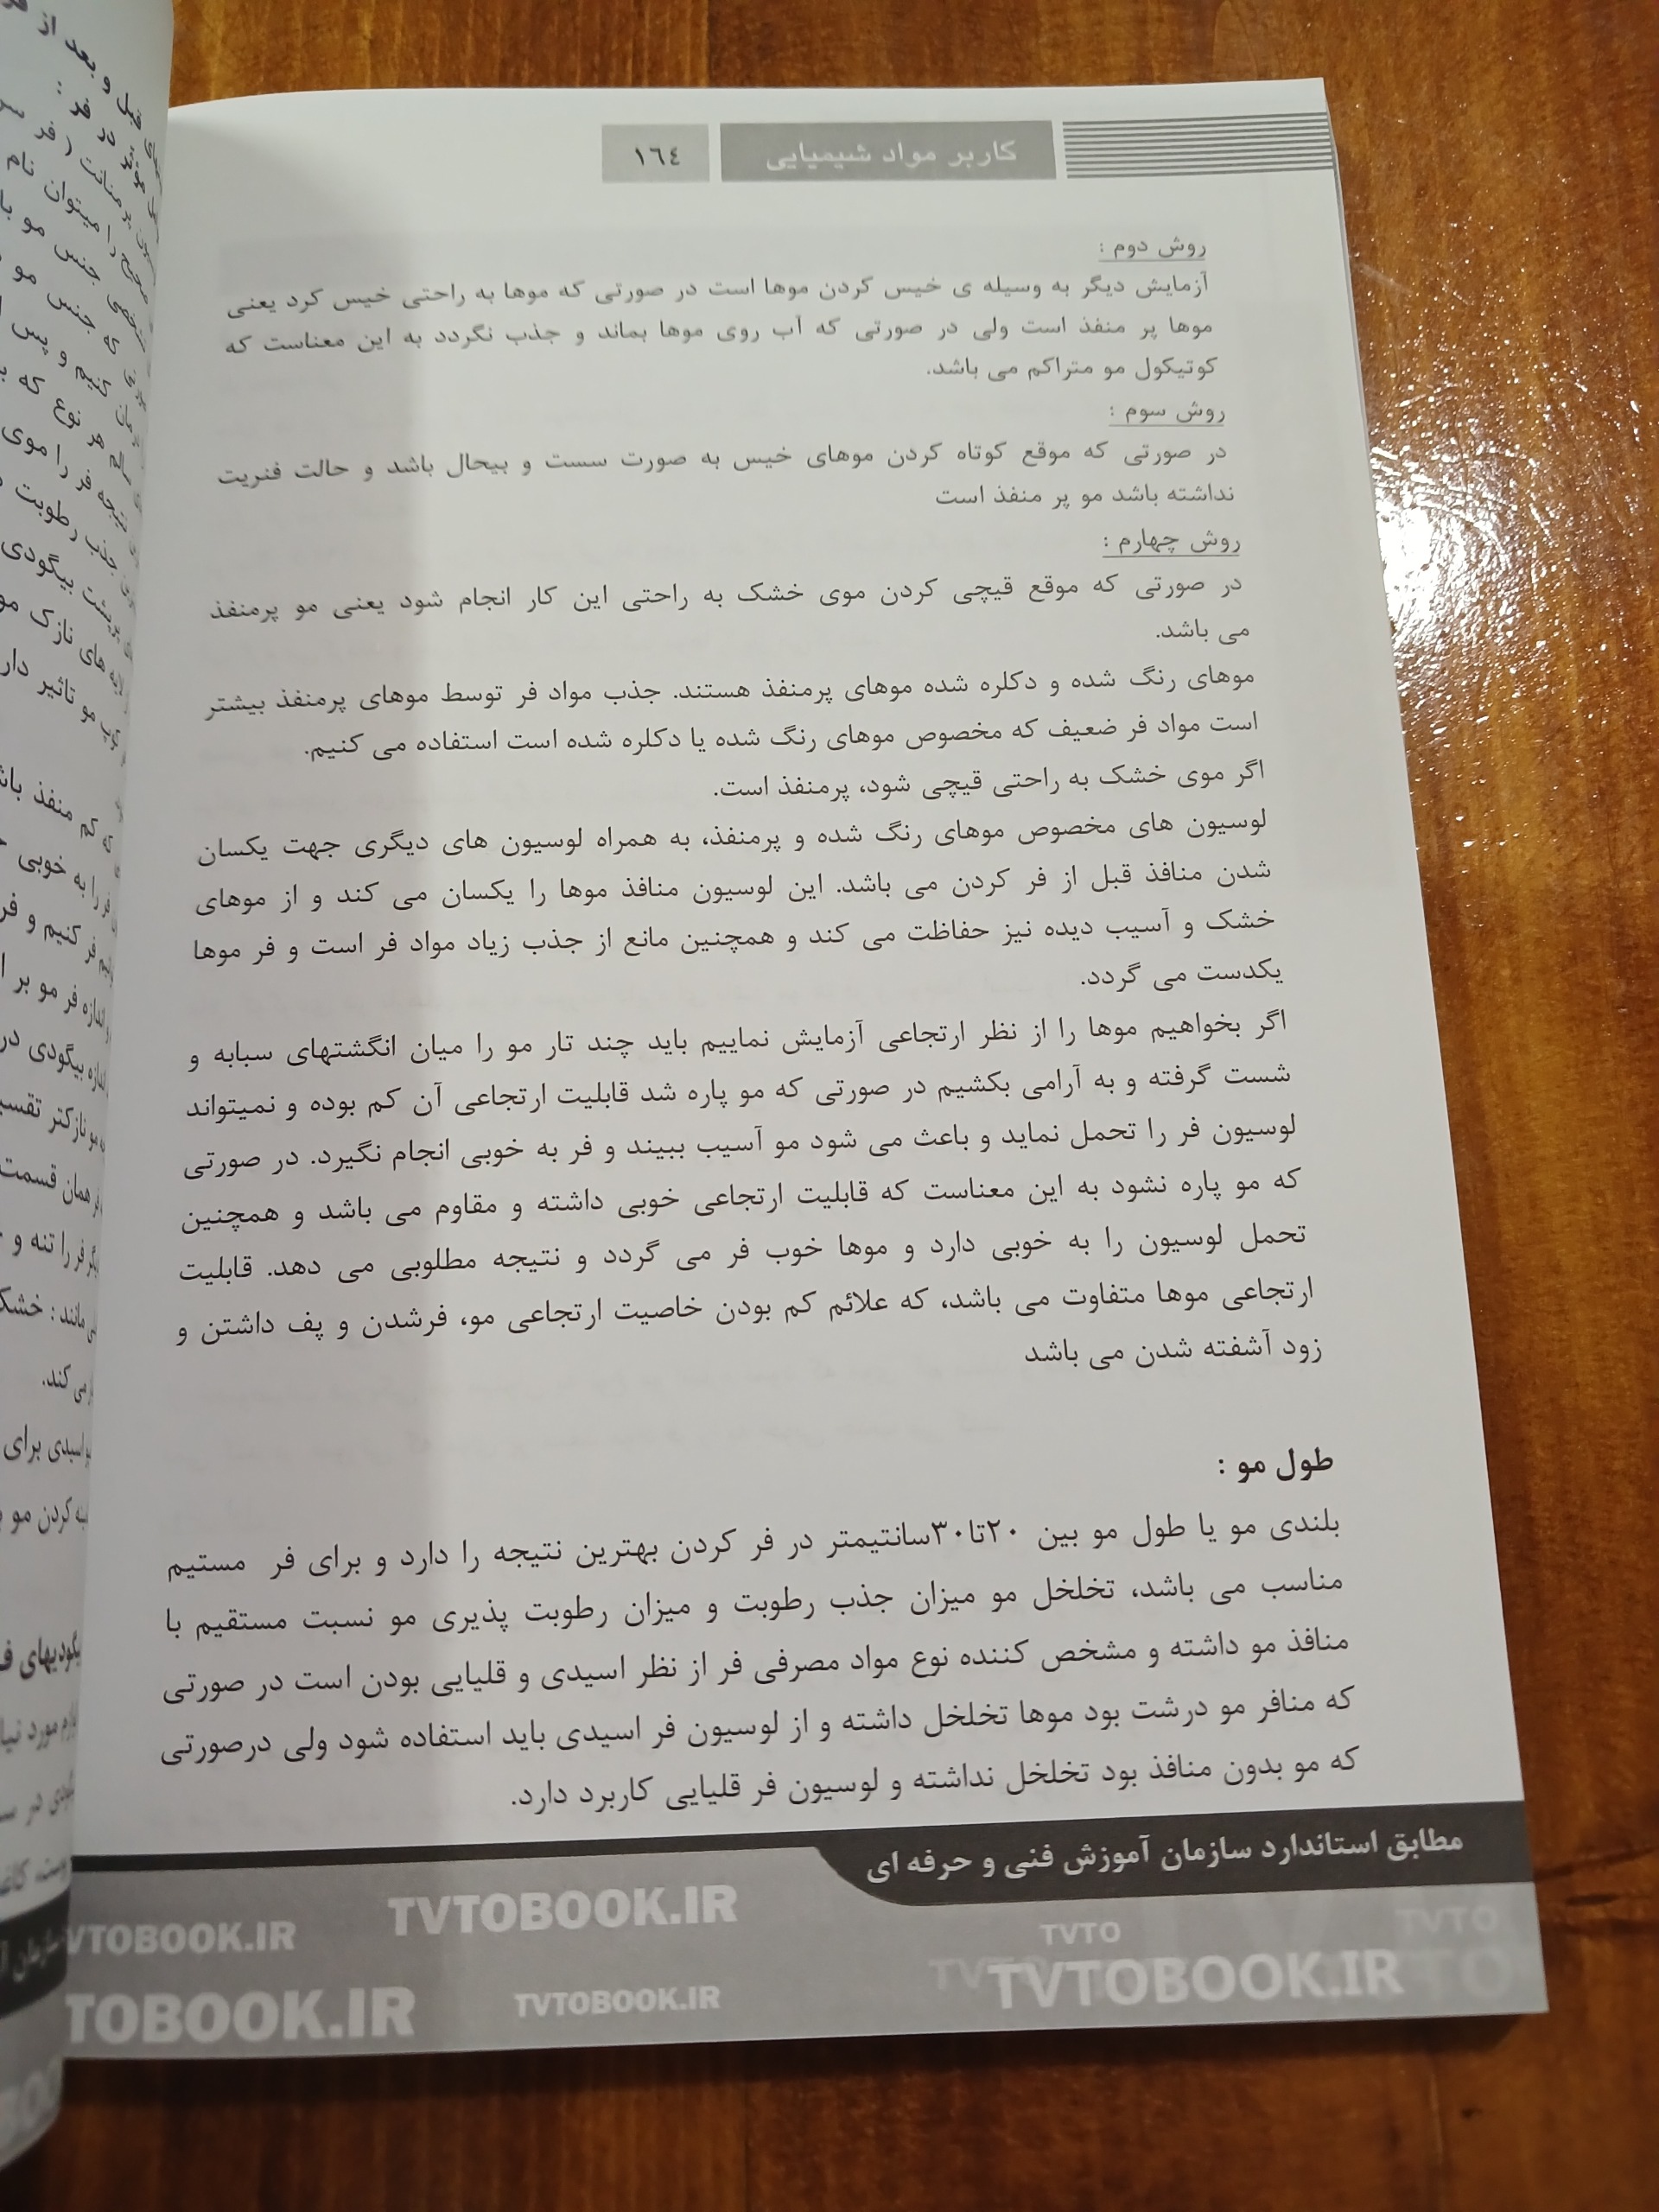 کاربر مواد شیمیایی
١٦٤
روش دوم :
آزمایش دیگر به وسیله ی خیس کردن موها است در صورتی که موها به راحتی خیس کرد یعنی
موها پر منفذ است ولی در صورتی که آب روی موها بماند و جذب نگردد به این معناست که
کوتیکول مو متراکم می باشد.
روش سوم :
در صورتی که موقع کوتاه کردن موهای خیس به صورت سست و بیحال باشد و حالت فنریت
نداشته باشد مو پر منفذ است
روش چهارم :
در صورتی که موقع قیچی کردن موی خشک به راحتی این کار انجام شود یعنی مو پرمنفذ
می باشد.
موهای رنگ شده و دکلره شده موهای پرمنفذ هستند. جذب مواد فر توسط موهای پرمنفذ بیشتر
است مواد فر ضعیف که مخصوص موهای رنگ شده یا دکلره شده است استفاده می کنیم.
اگر موی خشک به راحتی قیچی شود، پرمنفذ است.
لوسیون های مخصوص موهای رنگ شده و پرمنفذ، به همراه لوسیون های دیگری جهت یکسان
شدن منافذ قبل از فر کردن می باشد. این لوسیون منافذ موها را یکسان می کند و از موهای
خشک و آسیب دیده نیز حفاظت می کند و همچنین مانع از جذب زیاد مواد فر است و فر موها
یکدست می گردد.
اگر بخواهیم موها را از نظر ارتجاعی آزمایش نماییم باید چند تار مو را میان انگشتهای سبابه و
شست گرفته و به آرامی بکشیم در صورتی که مو پاره شد قابلیت ارتجاعی آن کم بوده و نمیتواند
لوسیون فر را تحمل نماید و باعث می شود مو آسیب ببیند و فر به خوبی انجام نگیرد. در صورتی
که مو پاره نشود به این معناست که قابلیت ارتجاعی خوبی داشته و مقاوم می باشد و همچنین
تحمل لوسیون را به خوبی دارد و موها خوب فر می گردد و نتیجه مطلوبی می دهد. قابلیت
ارتجاعی موها متفاوت می باشد، که علائم کم بودن خاصیت ارتجاعی مو، فرشدن و پف داشتن و
زود آشفته شدن می باشد
طول مو :
بلندی مو یا طول مو بین ۲۰تا۳۰سانتیمتر در فر کردن بهترین نتیجه را دارد و برای فر مستیم
مناسب می باشد، تخلخل مو میزان جذب رطوبت و میزان رطوبت پذیری مو نسبت مستقیم با
منافذ مو داشته و مشخص کننده نوع مواد مصرفی فر از نظر اسیدی و قلیایی بودن است در صورتی
که منافر مو درشت بود موها تخلخل داشته و از لوسیون فر اسیدی باید استفاده شود ولی درصورتی
که مو بدون منافذ بود تخلخل نداشته و لوسیون فر قلیایی کاربرد دارد.
مطابق استاندارد سازمان آموزش فنی و حرفه ای
TVTOBOOK.IR
TVTO
TVTO
TVTOBOOK.IR
TVTOBOOK.IR